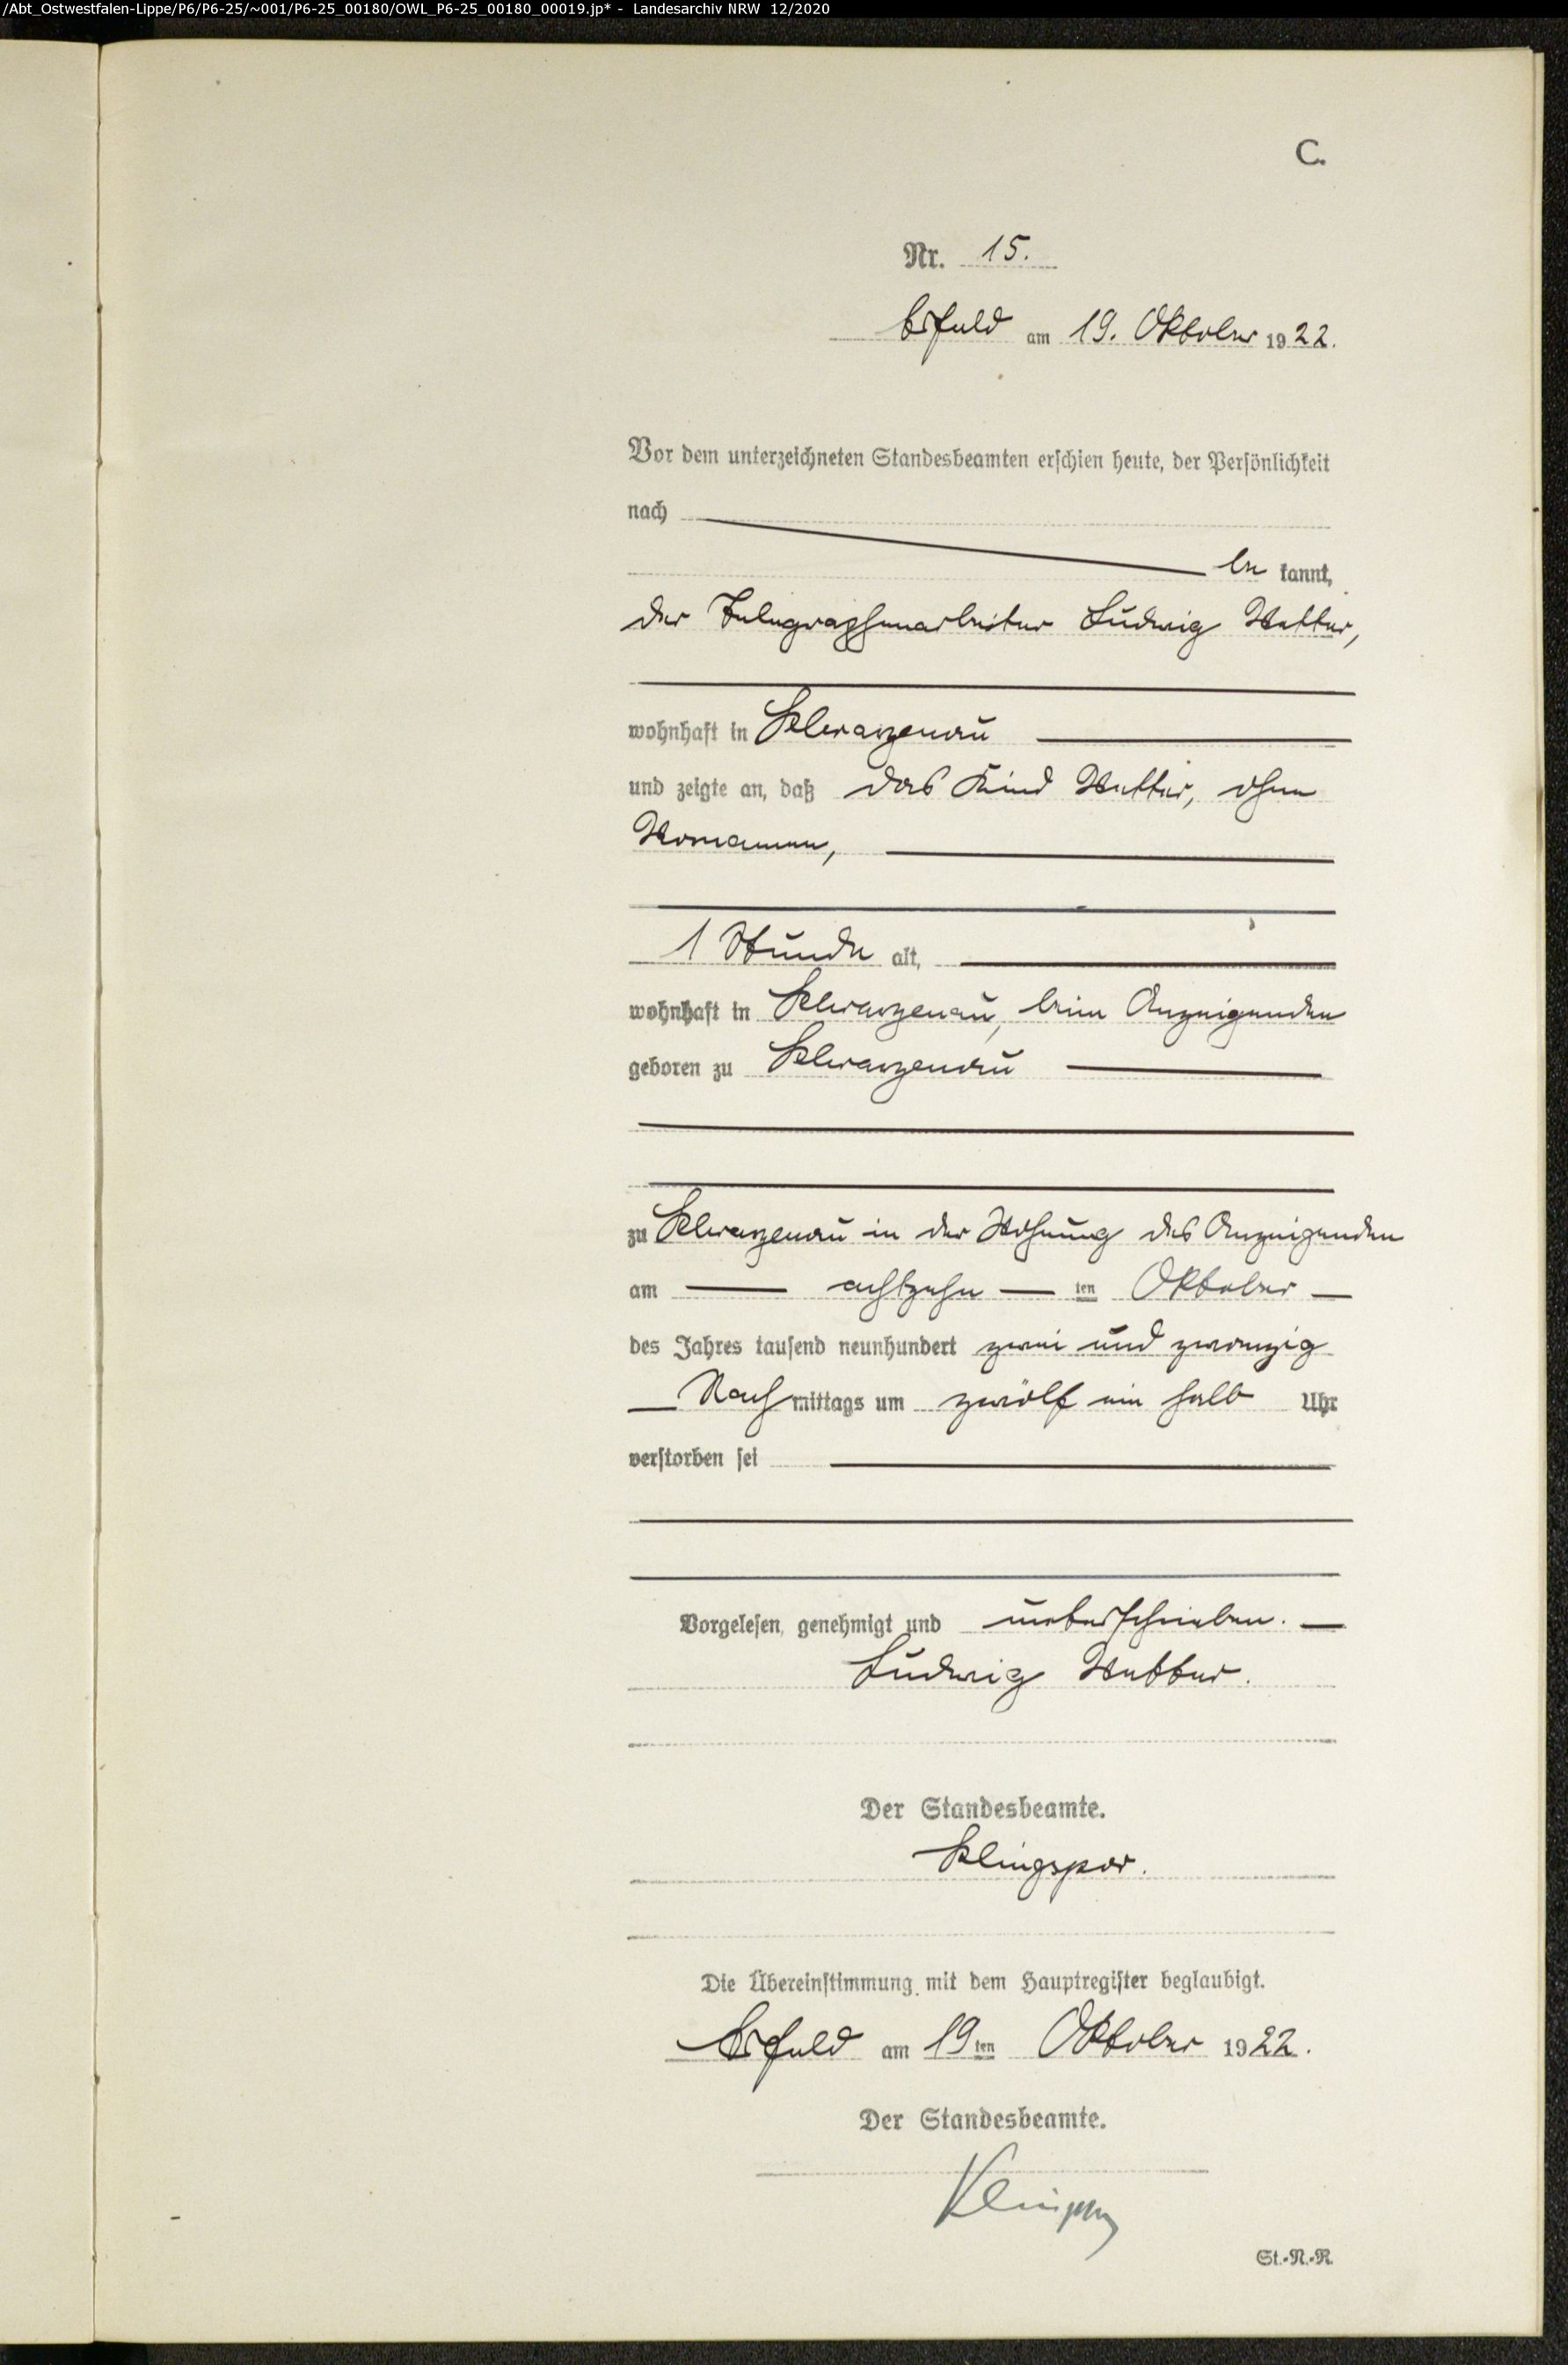 /Abt_Ostwestfalen-Lippe/P6/P6-25/~001/P6-25_00180/OWL_P6-25_00180_00019.jp* - Landesarchiv NRW 12/2020
C.
Nr. 15.
am 19. Oktober 1922.
Vor dem unterzeichneten Standesbeamten erschien heute, der Persönlichkeit
nach
be kannt,
der Telegraphenarbeiter Ludwig Vetter,
wohnhaft in Schwarzenau
und zeigte an, daß das Kind Vetter, ohne
Vornamen,
1 Stunde alt,
wohnhaft in Schwarzenau, beim Anzeigenden
geboren zu Schwarzenau
zu Schwarzenau in der Wohnung des Anzeigenden
am achtzehn ten Oktober
des Jahres tausend neunhundert zwei und zwanzig
Nach mittags um zwölf ein halb Uhr
verstorben sei
Vorgelesen, genehmigt und unterschrieben.
Ludwig Vetter.
Der Standesbeamte.
Klingspor.
Die Übereinstimmung mit dem Hauptregister beglaubigt.
am 19ten Oktober 1922.
Der Standesbeamte.
Klingspor
St.-N.-R.